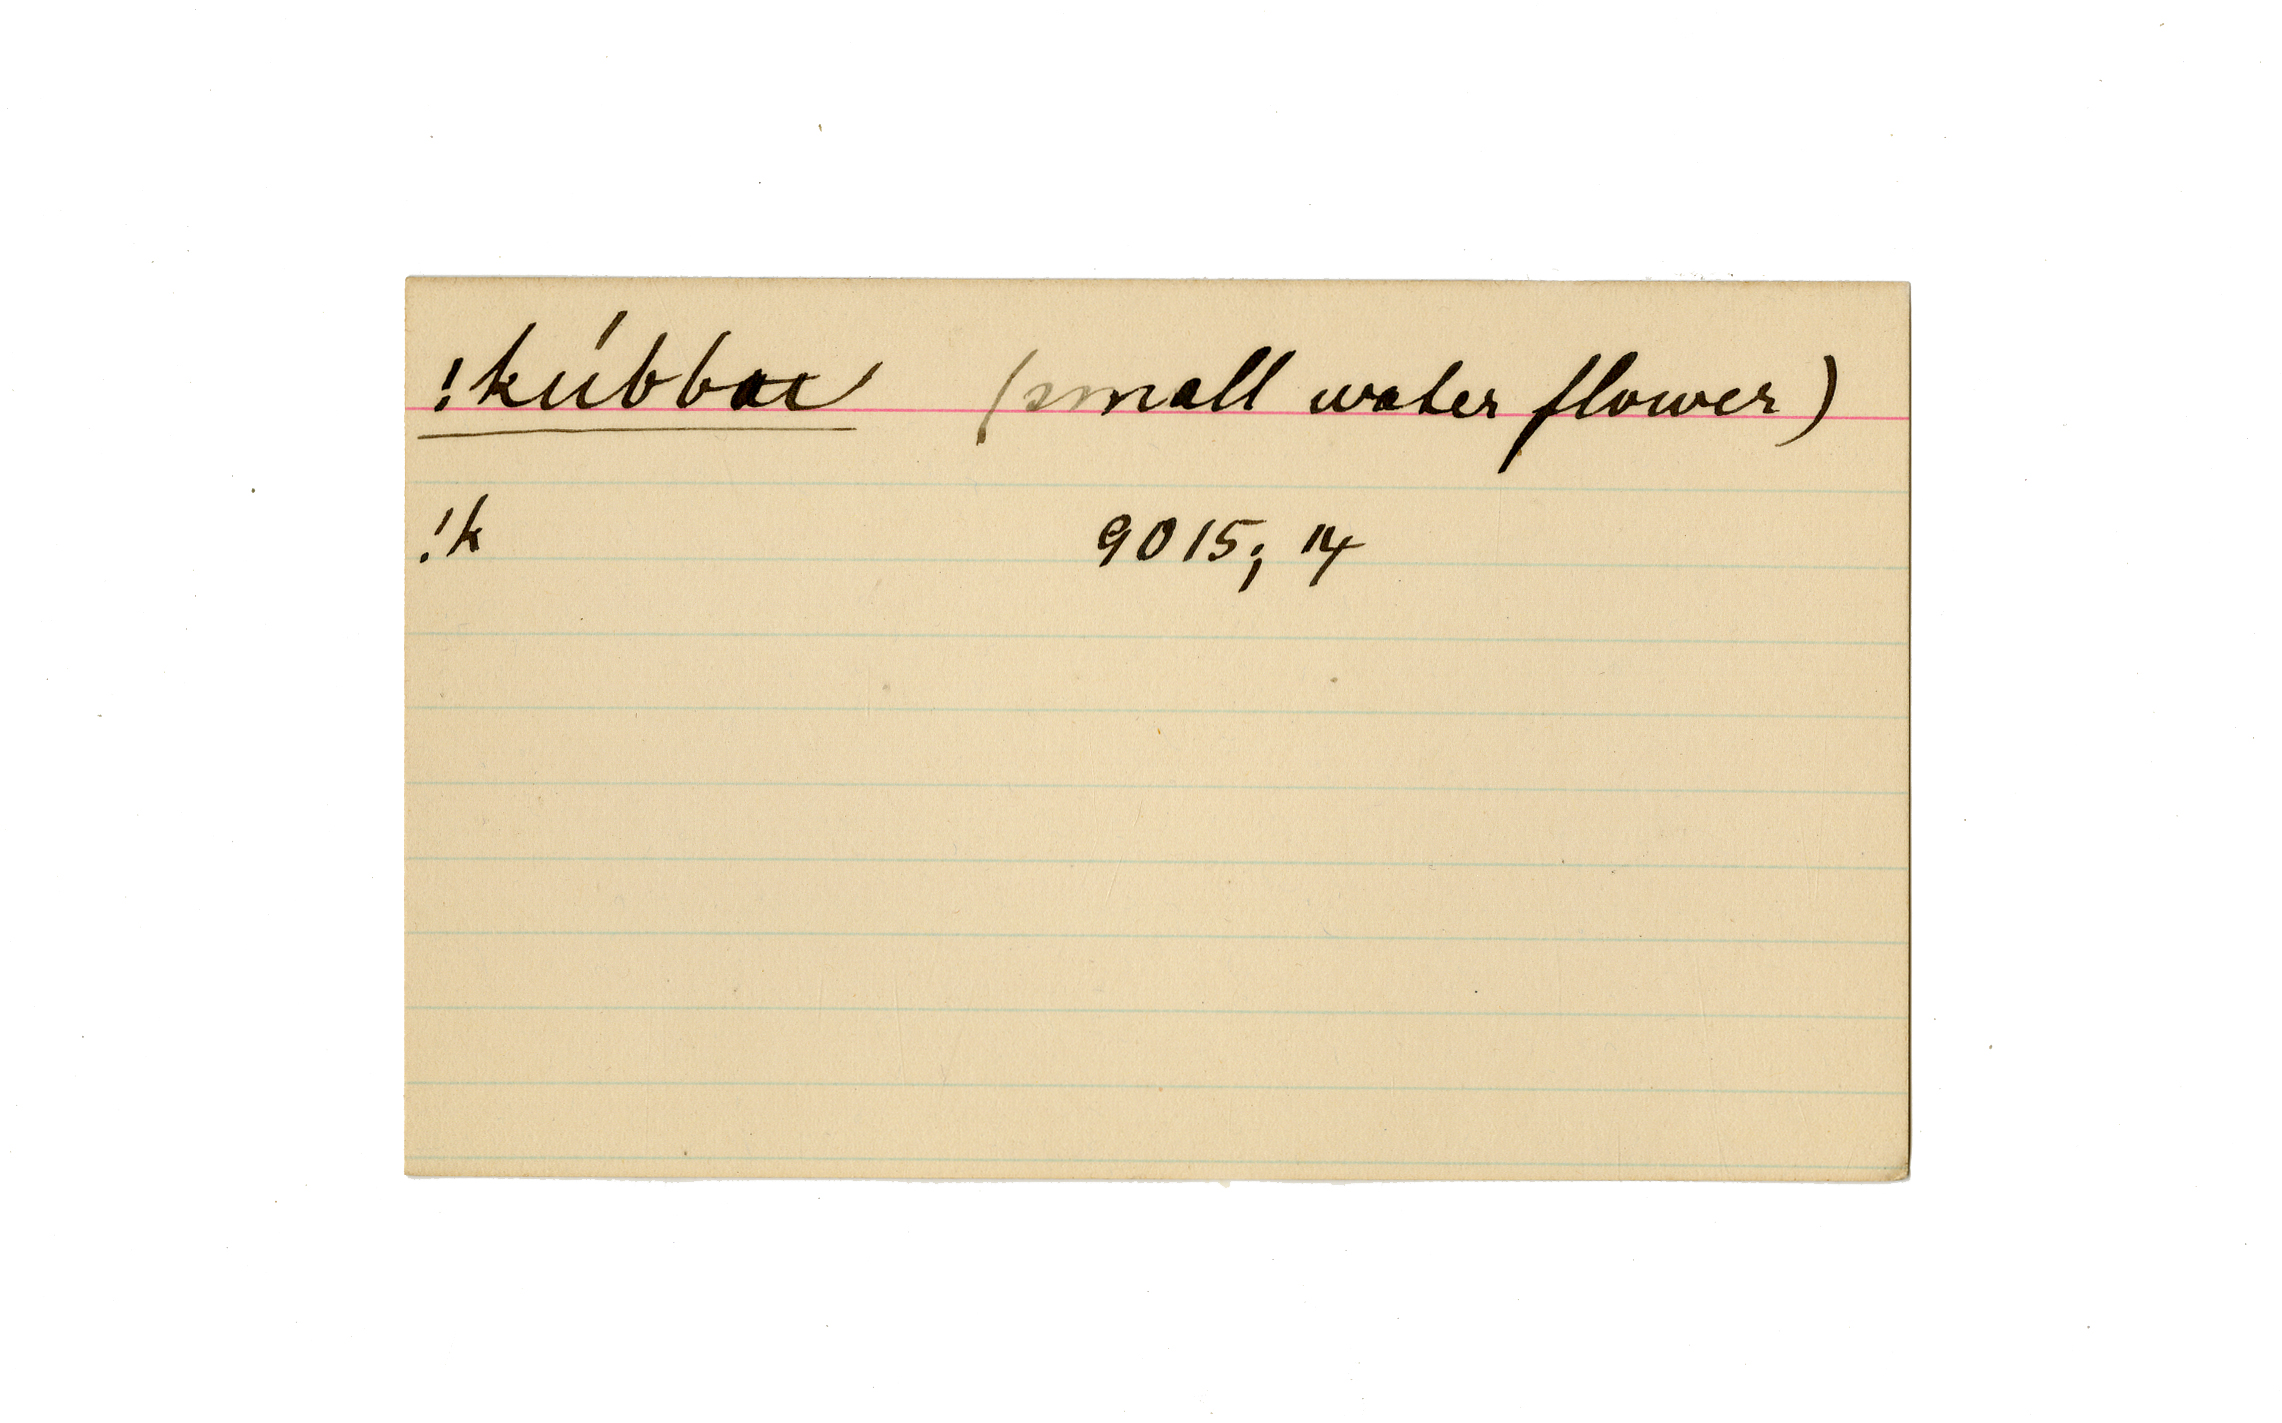 !kúbbae (small water flower)
!k 9015; 14